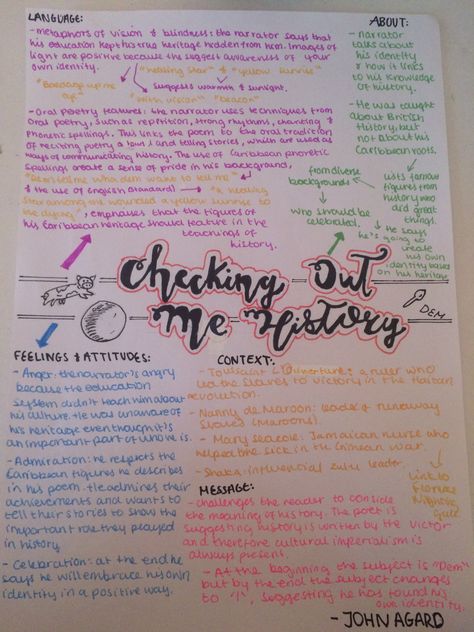 LANGUAGE:
-metaphors of vision & blindness: the narrator says that
his education kept his true heritage hidden from him. Images of
light are positive because the suggest awareness of your
own identity.
"healing star" & "yellow sunrise"
"Bandage up me
eye"
suggests warmth & sunlight.
"with vision" "beacon"
-Oral Poetry features: the narrator uses techniques from
oral poetry, such as reptition, strong rhythms, chanting &
Phonetic spellings. This links the poem to the oral tradition
of reciting poetry aloud and telling stories, which are used as
ways of communicating history. The use of Caribbean phonetic
spellings create a sense of pride in his background,
"Dem tell me wha dem want to tell me"
& the use of English (standard) → "a healing
star among the wounded a yellow sunrise to
the dying", emphases that the figures of
his Caribbean heritage should feature in the
teachings of
history.
ABOUT:
-narrator
talks about
his identity
& how it
links to his
knowledge of
history.
-He was taught
about British
History, but
not about his
Caribbean roots.
lists famous
figures from
history who
did great
things.
from diverse
backgrounds
who should be
celebrated.
He says
he's going to
create his
own identity
based on
his heritage
Checking Out
Me History
DEM
FEELINGS & ATTITUDES:
-Anger: the narrator is angry
because the education
system didn't teach him about
his culture. He was unaware of
his heritage even though it is
an important part of who he is.
-Admiration: he respects the
Caribbean figures he describes
in his poem. He admires their
achievements and wants to
tell their stories to show the
important role they played
in history.
-Celebration: at the end he
says he will embrace his own
identity in a positive way.
CONTEXT:
-Toussaint L'Ouverture: a ruler who
led the slaves to victory in the Haitian
revolution.
-Nanny de Maroon: leader of runaway
slaves (Maroons).
-Mary Seacole: Jamaican nurse who
helped the sick in the Crimean war.
-Shaka: influencial zulu leader.
Link to
Florence
Nightingale
MESSAGE:
-challenges the reader to conside
the meaning of history. The poet is
suggesting history is written by the victor
and therefore cultural imperialism is
always present.
-At the beginning the subject is "Dem"
but by the end the subject changes
to 'I', suggesting he has found his
own identity.
- JOHN AGARD